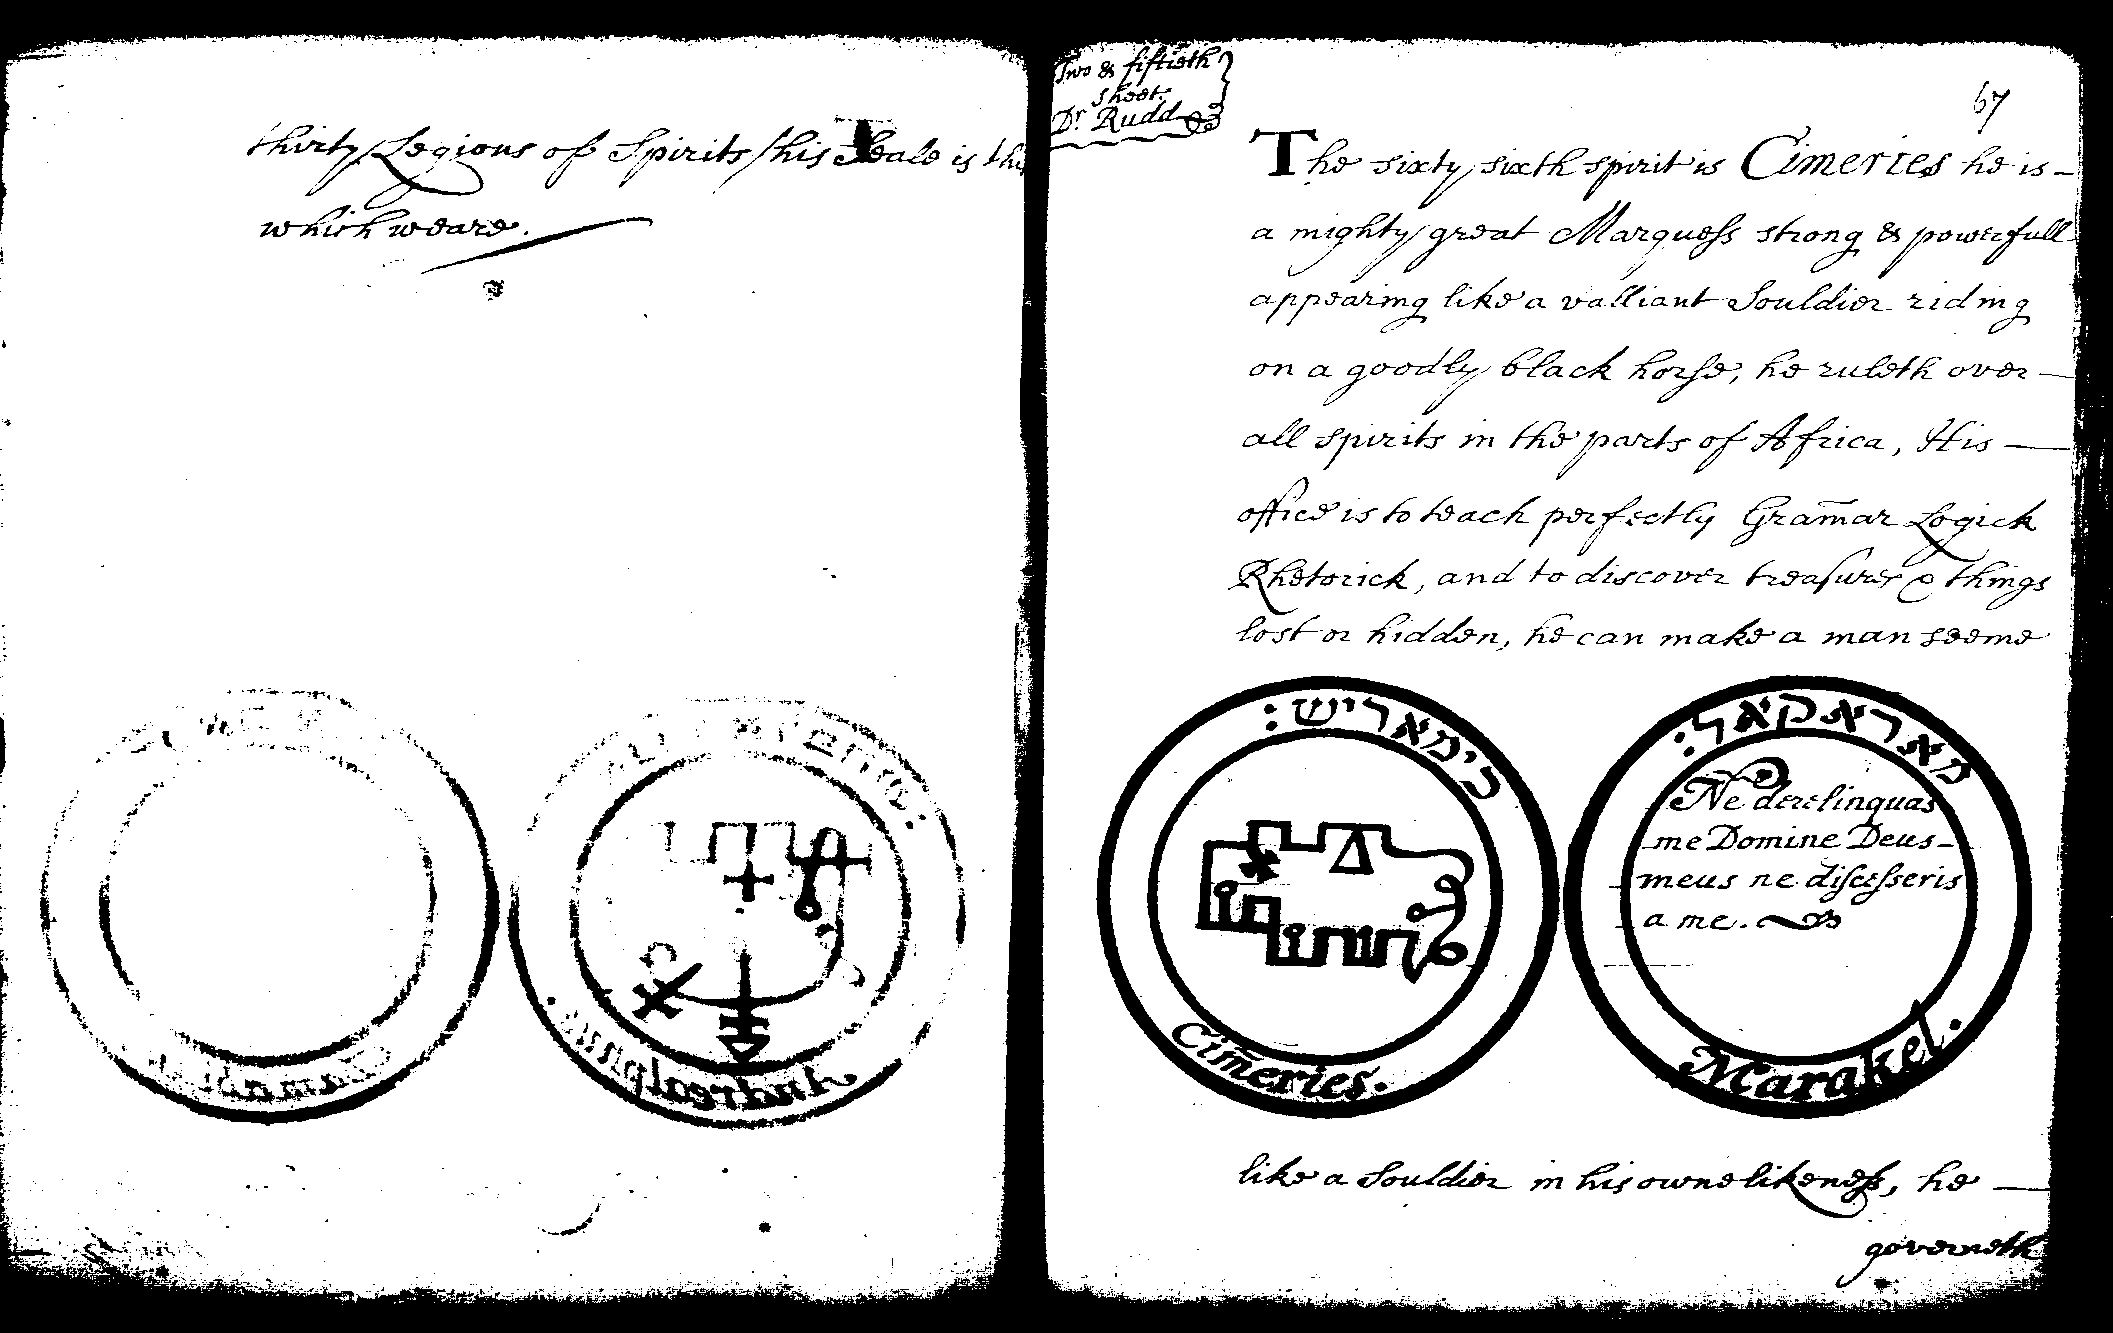 thirty Legions of Spirits, his Seale is this
which weare.
Two & fiftieth
sheet.
Dr Rudd
67
The sixty sixth spirit is Cimeries he is
a mighty great Marquess strong & powerfull
appearing like a valliant Souldier riding
on a goodly black horse, he ruleth over
all spirits in the parts of Africa, His
office is to teach perfectly Gramar Logick
Rhetorick, and to discover treasures & things
lost or hidden, he can make a man seeme
כימאריש:
Cimeries.
מאראקאל:
Ne derelinquas
me Domine Deus
meus ne discesseris
a me.
Marakel.
like a Souldier in his owne likeness, he
governeth